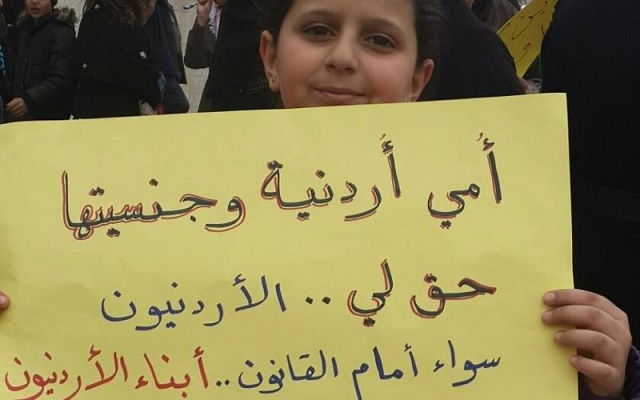 أُمي أُردنية وجنسيتها
حق لي .. الأردنيون
سواء أمام القانون .. أبناء الأردنيون